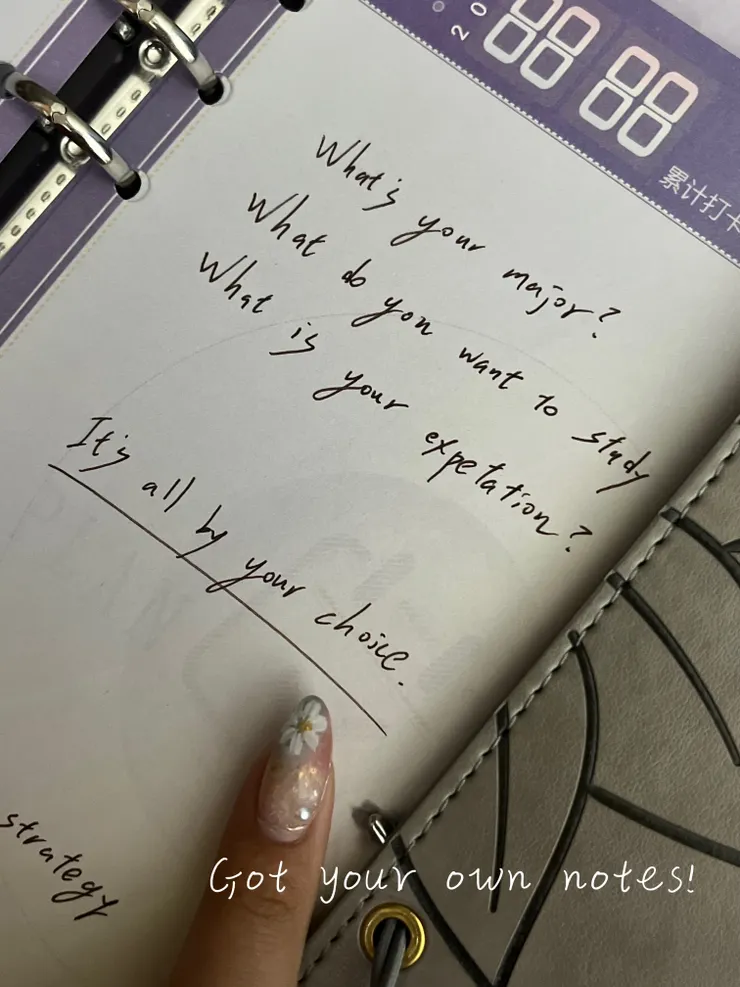 20
88 88
累计打卡
What's your major?
What do you want to study
What is your expetation?
It's all by your choice.
strategy
Got your own notes!